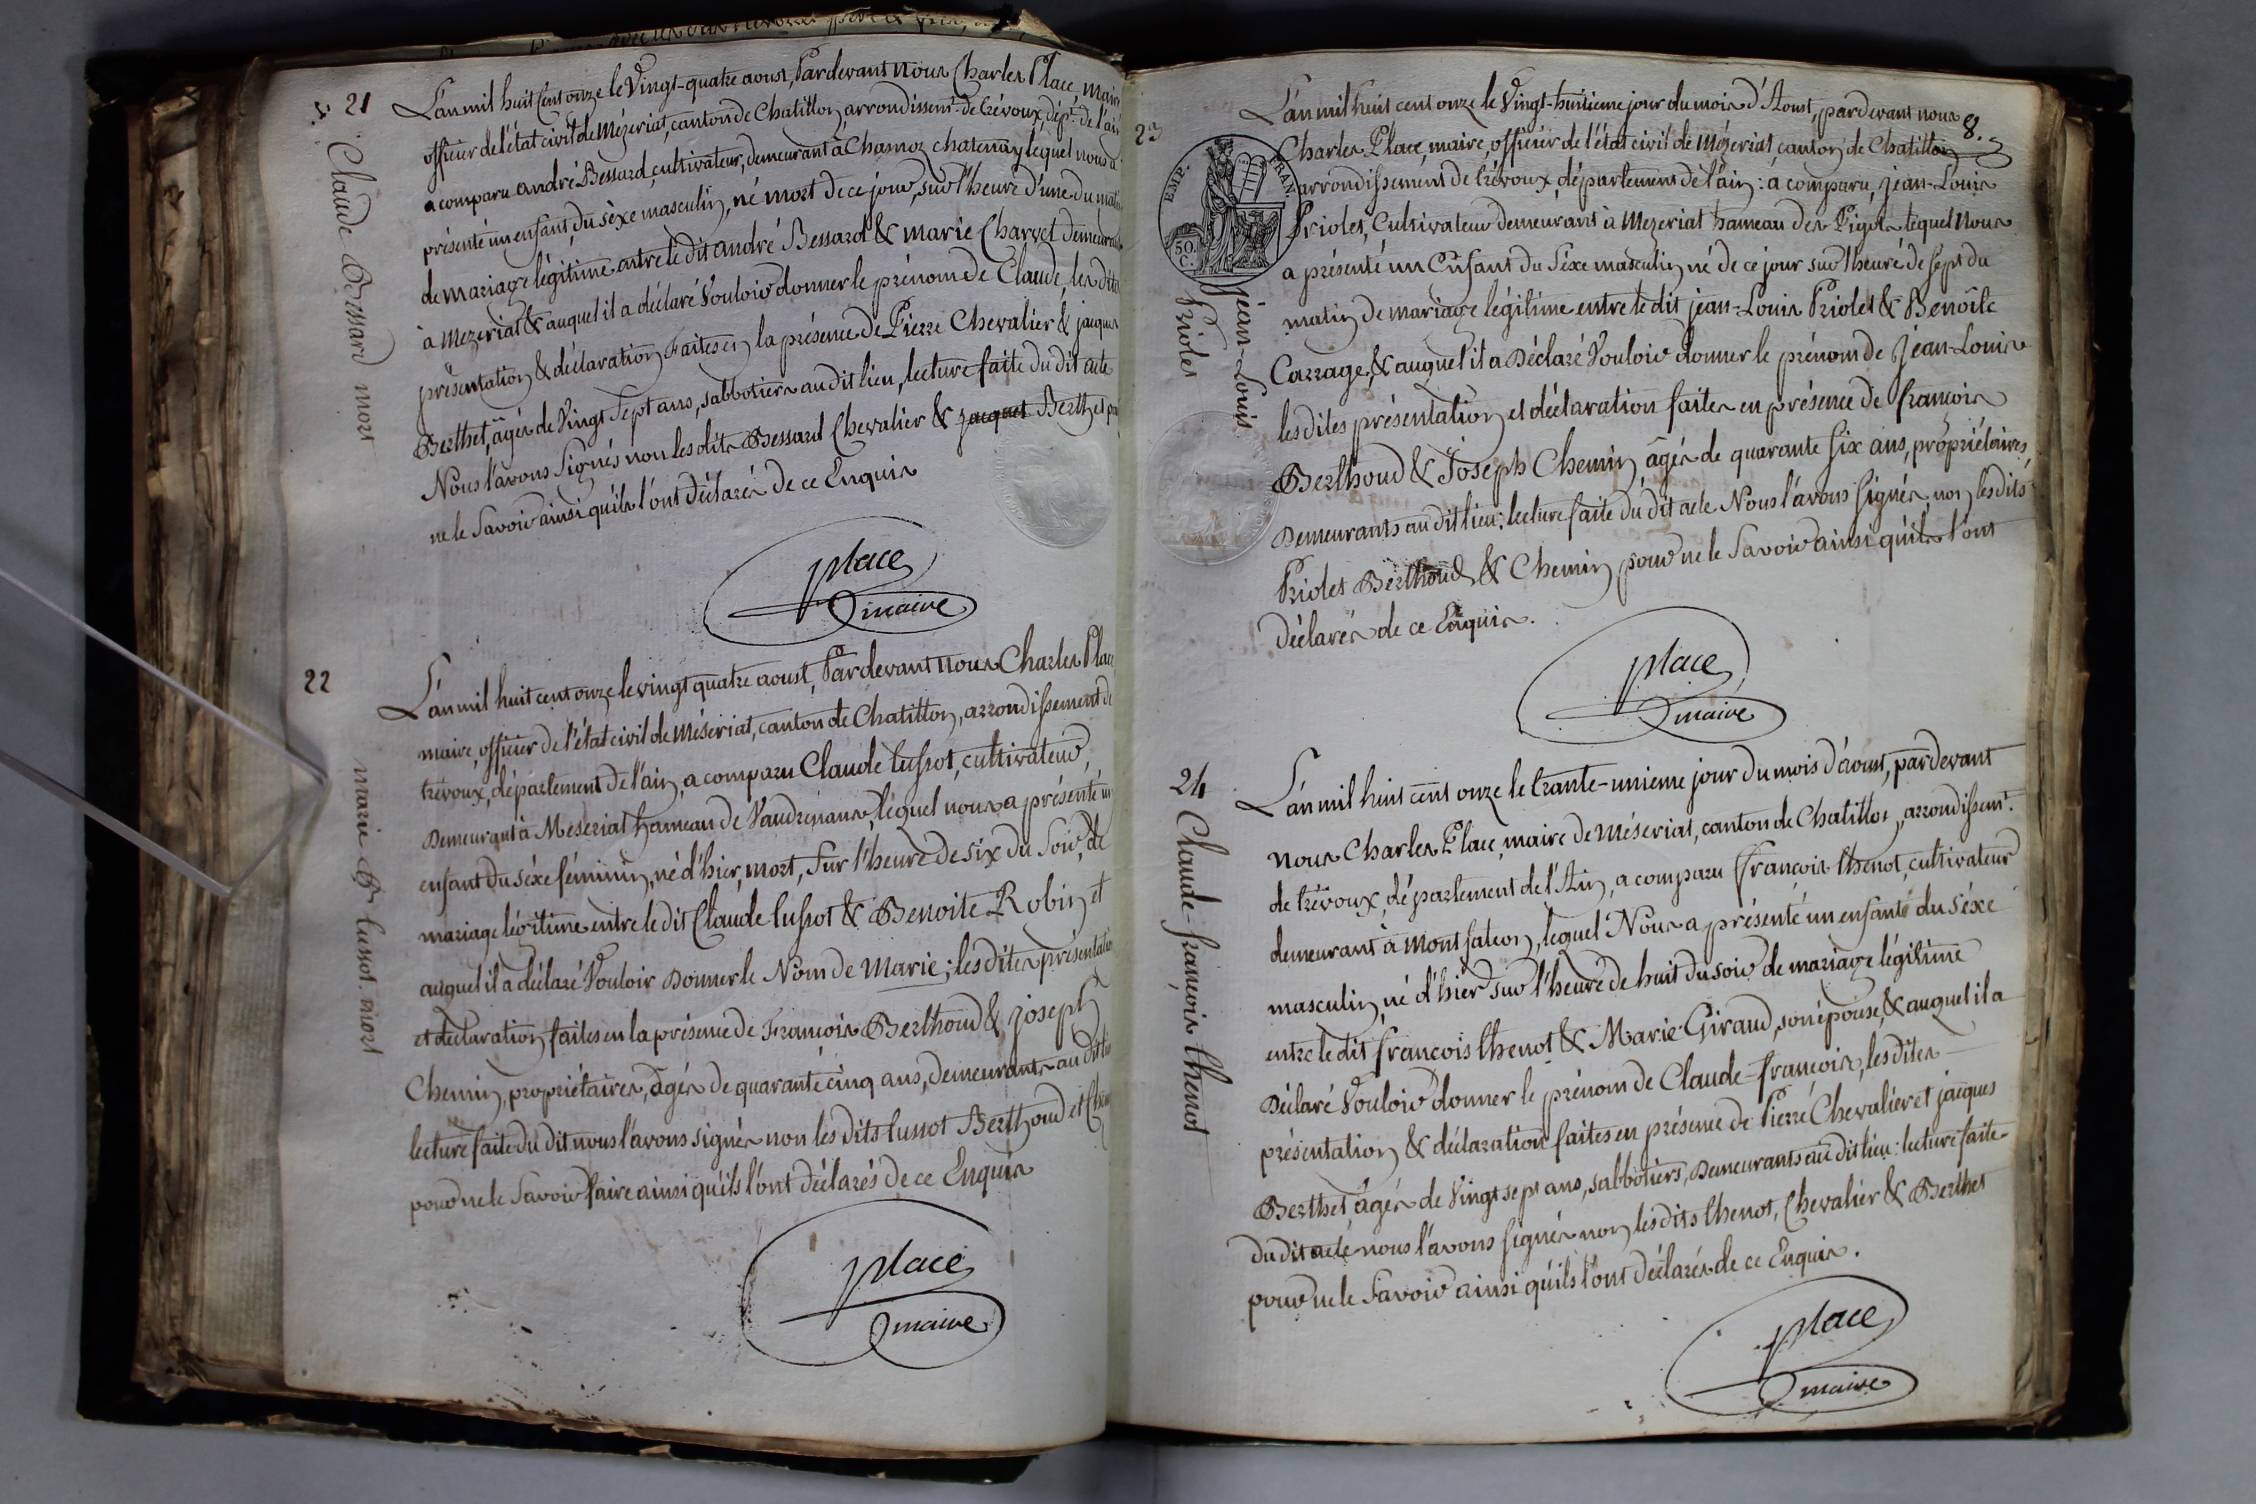 21
Claude Bessard mort
L'an mil huit cent onze le Vingt-quatre aoust, Pardevant nous Charles Place, Maire
officier de l'état civil de Mézeriat, canton de Chatillon, arrondissemt. de trévoux, dépt. de l'ain
a comparu andré Bessard, cultivateur, demeurant à Chamoz chatenay lequel nous a
présenté un enfant, du séxe masculin, né mort de ce jour, sur l'heure d'une du matin
de mariage légitime entre le dit andré Bessard & marie Charvet demeurants
à Mezeriat & auquel il a déclaré Vouloir donner le prénom de Claude, les dites
présentation & déclaration Faites en la présence de Pierre Chevalier & jacques
Berthet, âgés de Vingt Sept ans, sabbotiers au dit lieu, lecture faite du dit acte
Nous l'avons Signés non les dits Bessard Chevalier & jacquet Berthet pour
ne le Savoir ainsi qu'ils l'ont déclarés de ce Enquis
place
maire
22
marie Bte lussot. mort
L'an mil huit cent onze le vingt quatre aoust, Pardevant nous Charles Place
maire, officier de l'état civil de Méseriat, canton de Chatillon, arrondissement de
trévoux, département de l'ain, a comparu Claude lussot, cultivateur,
Demeurant à Meseriat hameau de Vaudrenans, lequel nous a présenté un
enfant du séxe féminin, né d'hier, mort, sur l'heure de six du Soir, de
mariage légitime entre le dit Claude lussot & Benoite Robin et
auquel il a déclaré Vouloir Donner le Nom de Marie; les dites présentation
et déclaration faites en la présence de François Berthoud & joseph
Chemin, propriétaires, âgés de quarante cinq ans, demeurants au dit lieu
lecture faite du dit nous l'avons signés non les dits lussot Berthoud et Chemin
pour ne le Savoir faire ainsi qu'ils l'ont déclarés de ce Enquis
place
maire
8.
23
EMP. FRAN.
50.
C.
jean-Louis
Priolet
L'an mil huit cent onze le Vingt-huitieme jour du mois d'Aoust, pardevant nous
Charles Place, maire, officier de l'état civil de Mézeriat, canton de Chatillon
arrondissement de trévoux, département de l'ain: a comparu, jean-Louis
Priolet, Cultivateur demeurant à Mezeriat hameau des Pigots lequel Nous
a présenté un Enfant du Séxe masculin né de ce jour sur l'heure de sept du
matin de mariage légitime entre le dit jean-Louis Priolet & Benoîte
Carrage, & auquel il a Déclaré Vouloir donner le prénom de Jean-Louis
les dites présentation et déclaration faites en présence de françois
Berthoud & Joseph Chemin âgés de quarante six ans, propriétaires,
Demeurants au dit lieu; lecture faite du dit acte Nous l'avons signés non les dits
Priolet Berthoud & Chemin pour ne le Savoir ainsi qu'ils l'ont
déclarés de ce Enquis.
place
maire
24
Claude-françois thenot
L'an mil huit cent onze le trante-unieme jour du mois d'aoust, pardevant
nous Charles Place, maire de Méseriat, canton de Chatillon, arrondissemt.
de trévoux, département de l'Ain, a comparu françois thenot, cultivateur
demeurant à Montfalcon, lequel Nous a présenté un enfant du séxe
masculin, né d'hier sur l'heure de huit du soir de mariage légitime
entre le dit françois thenot & Marie Giraud, son épouse, & auquel il a
Déclaré Vouloir donner le prénom de Claude-françois, les dites
présentation & déclaration faites en présence de Pierre Chevalier et jacques
Berthet âgés de Vingt sept ans, sabbotiers, Demeurants au dit lieu: lecture faite
du dit acte nous l'avons signés non les dits thenot, Chevalier & Berthet
pour ne le Savoir ainsi qu'ils l'ont déclarés de ce Enquis.
place
maire